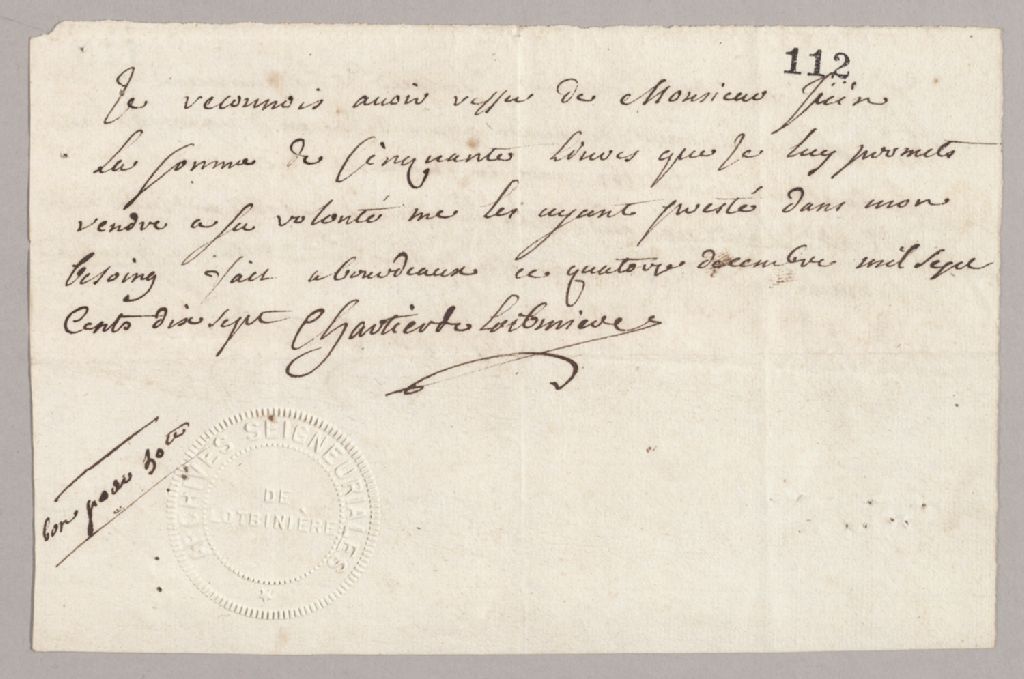 112
Je reconnois auoir resseu de Monsieur Juin
La somme de sinquante Liures que je luy promets
rendre a sa volonté me les ayant presté dans mon
besoing fait a bourdeaux ce quatorze decembre mil sept
Cents dix sept Chartier de Lotbiniere
bon pour 50 tt
ARCHIVES SEIGNEURIALES
DE
LOTBINIÈRE